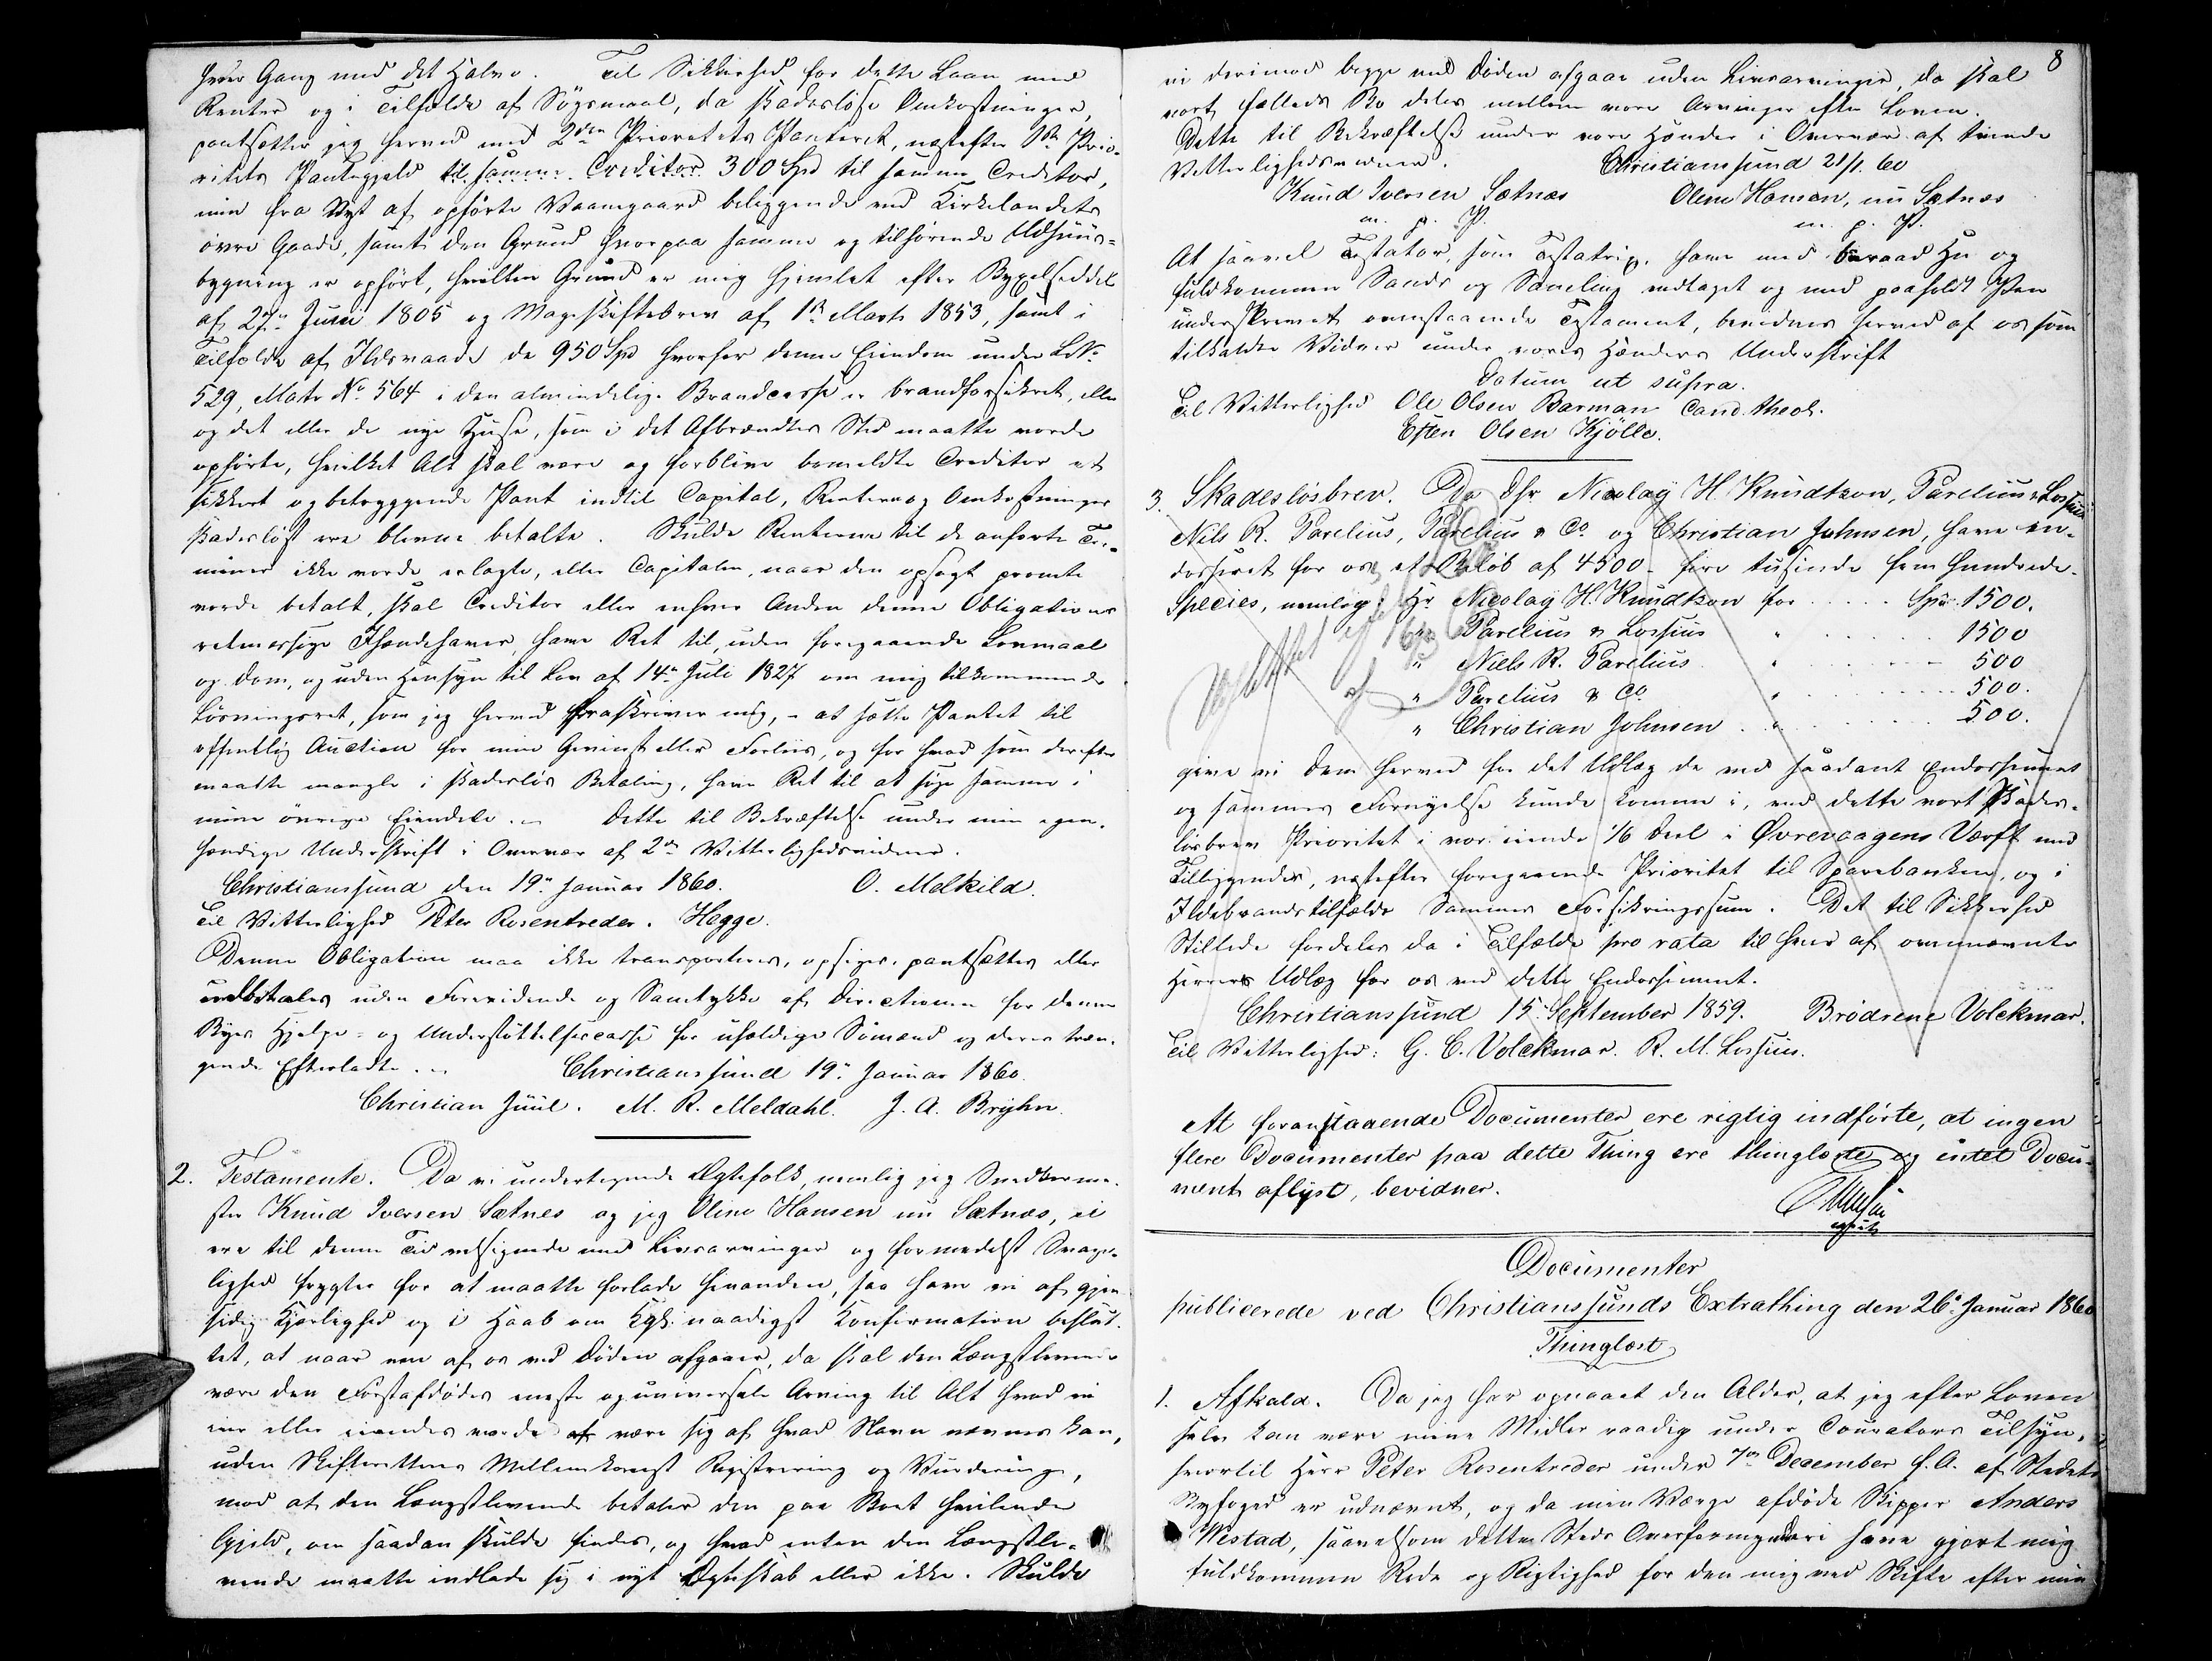 hver Gang med det Halve. Til Sikkerhed for dette Laan med
Renter og i Tilfælde af Søgsmaal, da skadesløse Omkostninger,
pantsætter jeg herved med 2den Prioritets Panteret, næstefter 1ste Prio-
ritets Pantegjeld til samme Creditor 300 Spd til samme Creditor,
min fra Nyt af opførte Vaanegaard beliggende ved Kirkelandets
øvre Gade, samt den Grund hvorpaa samme og tilhørende Udhuus-
bygning er opført, hvilken Grund er mig hjemlet efter Bygselseddel
af 27de Juni 1805 og Mageskiftebrev af 1ste Marts 1853, samt i
Tilfælde af Ildsvaade de 950 Spd hvorfor denne Eiendom under L No
529, Matr No 564 i den almindelige Brandcasse er brandforsikret, eller
og det eller de nye Huse, som i det Afbrændtes Sted maatte vorde
opførte, hvilket Alt skal være og forblive bemeldte Creditor et
sikkert og betryggende Pant indtil Capital, Renterne og Omkostninger
skadesløst ere blevne betalte. Skulde Renterne til de anførte Ter-
miner ikke vorde erlagte, eller Capitalen, naar den opsagt promte
vorde betalt, skal Creditor eller enhver Anden denne Obligations
retmæssige Ihændehaver, have Ret til, uden foregaaende Lovmaal
og Dom, og uden Hensyn til Lov af 14de Juli 1827 om mig tilkommende
Løsningsret, som jeg herved fraskriver mig, - at sætte Pantet til
offentlig Auction for min Gevinst eller Forliis, og for hvad som derefter
maatte mangle i skadesløs Betaling, have Ret til at søge samme i
mine øvrige Eiendele. - Dette til Bekræftelse under min egen-
hændige Underskrift i Overvær af 2de Vitterlighedsvidner.
Christianssund den 19de Januar 1860. O. Melkild.
Til Vitterlighed Peter Rosentreder. Hagge.
Denne Obligation maa ikke transporteres, opsiges, pantsættes eller
indbetales uden Forevidende og Samtykke af Directionen for denne
Byes Hjelpe- og Understøttelsescasse for uheldige Sømænd og deres træn-
gende Efterladte. - Christianssund 19de Januar 1860.
Christian Juul. M. R. Meldahl. J. A. Bryhn.
2. Testamente. Da vi undertegnede Ægtefolk, nemlig jeg Snedkerme-
ster Knud Iversen Sætnes og jeg Oline Hansen nu Sætnæs, ei
ere til denne Tid velsignede med Livsarvinger og formedelst Svage-
lighed frygter for at maatte forlade hinanden, saa have vi af gjen-
sidig Kjærlighed og i Haab om kgl. naadigst Konfirmation beslut-
tet, at naar een af os ved Døden afgaaer, da skal den Længstlevende
være den Førstafdødes eneste og universale Arving til Alt hvad vi
eier eller eiendes vorde af være sig af hvad Navn nævnes kan,
uden Skifterettens Mellemkomst Registrering og Vurdering,
mod at den Længstlevende betaler den paa Boet hvilende
Gjeld, om saadan skulde findes, og hvad enten den Længstle-
vende maatte indlade sig i nyt Ægteskab eller ikke. Skulde
8
vi derimod begge ved Døden afgaae uden Livsarvinger, da skal
vort fælleds Bo deles mellem vore Arvinger efter Loven.
Dette til Bekræftelse under vore Hænder i Overvær af tvende
Vitterlighedsvidner. Christianssund 21/1. 60
Knud Iversen Sætnæs Olene Hansen, nu Sætnæs
m. p. P. m. p. P.
At saavel Testator, som Testatrix, have med beraad Hu og
fuldkommen Sands og Samling vedtaget og med paaholdt Pen
underskrevet ovenstaaende Testament, bevidnes herved af os som
tilkaldte Vidner under vores Hænders Underskrift
Datum ut supra.
Til Vitterlighed Ole Olsen Barman Cand. theol.
Esten Olsen Kjölle.
3. Skadesløsbrev. Da Dhr Nicolay H. Knudtzon, Parelius & Lossius
Nils R. Parelius, Parelius & Co og Christian Johnsen, have en-
dosseret for os et Beløb af 4500 - fire tusinde fem hundrede -
Species, nemlig: Hr Nicolay H. Knudtzon for ..... Spd. 1500.
" Parelius & Lossius " ..... 1500
" Niels R. Parelius " ..... 500
" Parelius & Co " ..... 500.
" Christian Johnsen " ..... 500.
Udslettet
af
give vi dem herved for det Udlæg de ved saadant Endossement
og sammes Fornyelse kunde komme i, ved dette vort Skades-
løsbrev Prioritet i vor eiende 1/6 Deel i Øvrevaagens Værft med
Tilliggender, næstefter foregaaende Prioritet til Sparebanken, og i
Ildebrandstilfælde Sammes Forsikringssum. Det til Sikkerhed
Stillede fordeles da i Tilfælde pro rata til hver af ovennævnte
Herrers Udlæg for os ved dette Endossement.
Christianssund 15de September 1859. Brødrene Volckmar.
Til Vitterlighed: G. C. Volckmar. R. M. Lossius.
At foranstaaende Documenter ere rigtig indførte, at ingen
flere Documenter paa dette Thing ere thinglæste og intet Docu-
ment aflyst, bevidner.
Documenter
publicerede ved Christianssunds Extrathing den 26de Januar 1860
Thinglæst
1. Afkald. Da jeg har opnaaet den Alder, at jeg efter Loven
selv kan være mine Midler raadig under Courators Tilsyn,
hvortil Herr Peter Rosentreder under 7de December f. A. af Stedets
Byfoged er udnævnt, og da min Værge afdøde Skipper Anders
Westad, saavelsom dette Steds Overformynderi have gjort mig
fuldkommen Rede og Rigtighed for den mig ved Skifte efter min